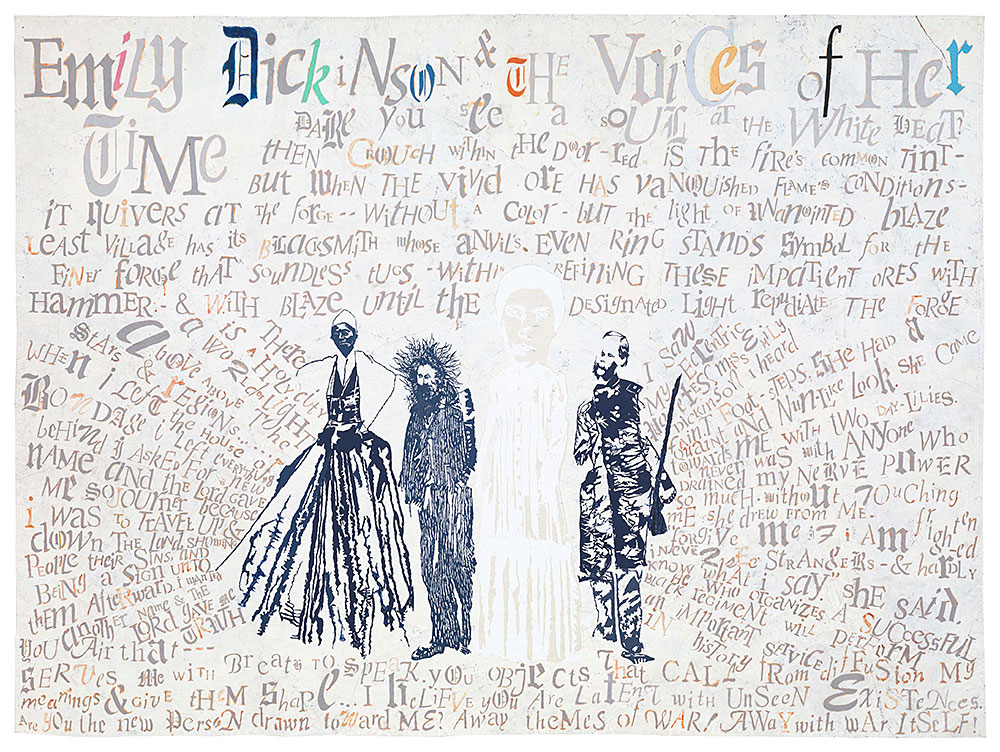 Emily Dickinson & THE Voices of Her
TiMe
DARE you see a soUL AT THE White HEAT?
tHEN CROUCH within tHE Door-red is THe fire's common tint-
BUT WHEN THE vivid ore HAS vaNQUISHED FLAME'S CONDitions-
iT QUIVERS AT THE forge -- WitHOUT A COLOR - BUT THE light OF UNANOINTED BLAZE
LEAST VILLAGE HAS its BLACKSMITH WHOSE ANVILS EVEN RING STANDS Symbol FOR tHE
FiNer forge tHAT SOUNDLESS tUGS - WitHiN REFINING THESE IMPATIENT ORES WitH
HAMMER & WitH BLAZE UNTIL tHE DESIGNATED LIGHT repudiate THE FORGE
THERE
is A HOLY CITY
a WORLD of LIGHT
above
STARS & regions...
WHEN i Left the HOUSE of
BONDAGE i Left EVERYTHING
beHiND i ASKED For a New
NAME AND the LORD GAVE
Me SOJOURNER because
i WAS TO TRAVEL UP &
down THE LAND SHOWING
PeopLe their SINS AND
BeiNg a SiGN UNTO
tHem AfterWard i WANTED
aNOTHER NAME & THE
LORD GAVE Me
TRUTH
I SAW
ECCENTRIC
POETESS MISS EMILY
DICKINSON i heard
a FAINT FOOT-STEPS. SHE HAD a
QUAINT AND NUN-LiKE LOOK SHE CAME
towards ME WITH TWO DAY-LILIES.
i never was with ANYONE WHO
DRAINED my NERVE POWER
so much. without TOUCHING
ME she drew from ME.
forgive me if i AM frightened
i NEVER SEE STRANGERS - & hardly
know WHAT i say." she SAID.
WHO ORGANIZES A SUCCESSFUL
BLACK REGIMENT WILL PERFORM
AN IMPORTANT SERVICE
iN history
YOU Air thAt ---
SERVES Me WITH Breath TO SPEAK. YOU OBJECTS that CALL from diffUSiON MY
meanings & GIVE tHEM SHAPE... I BeLiEVE YOU Are LATENT WITH UNSEEN EXISTENCES.
Are YOU the new PersoN drawn toward ME? AwAy tHeMes of WAR! AWAY with wAr ItSeLF!